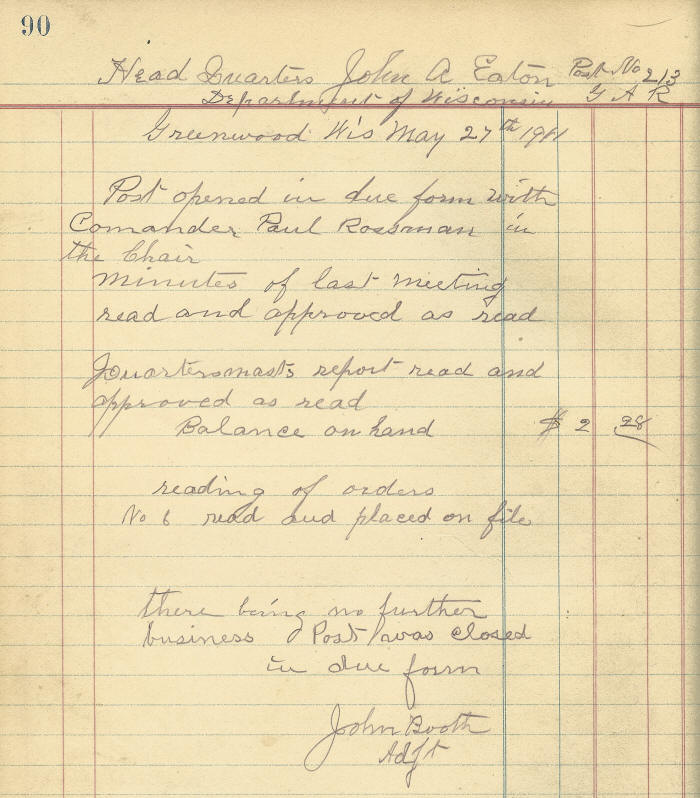 90
Head Quarters John A Eaton Post No 213
Department of Wisconsin G A R
Greenwood Wis May 27th 1911
Post opened in due form with
Comander Paul Rossman in
the Chair
Minutes of last Meeting
read and approved as read
Quartersmasts report read and
approved as read
Balance on hand $ 2 28
reading of orders
No 6 read and placed on file
there being no further
business Post was closed
in due form
John Booth
Adjt